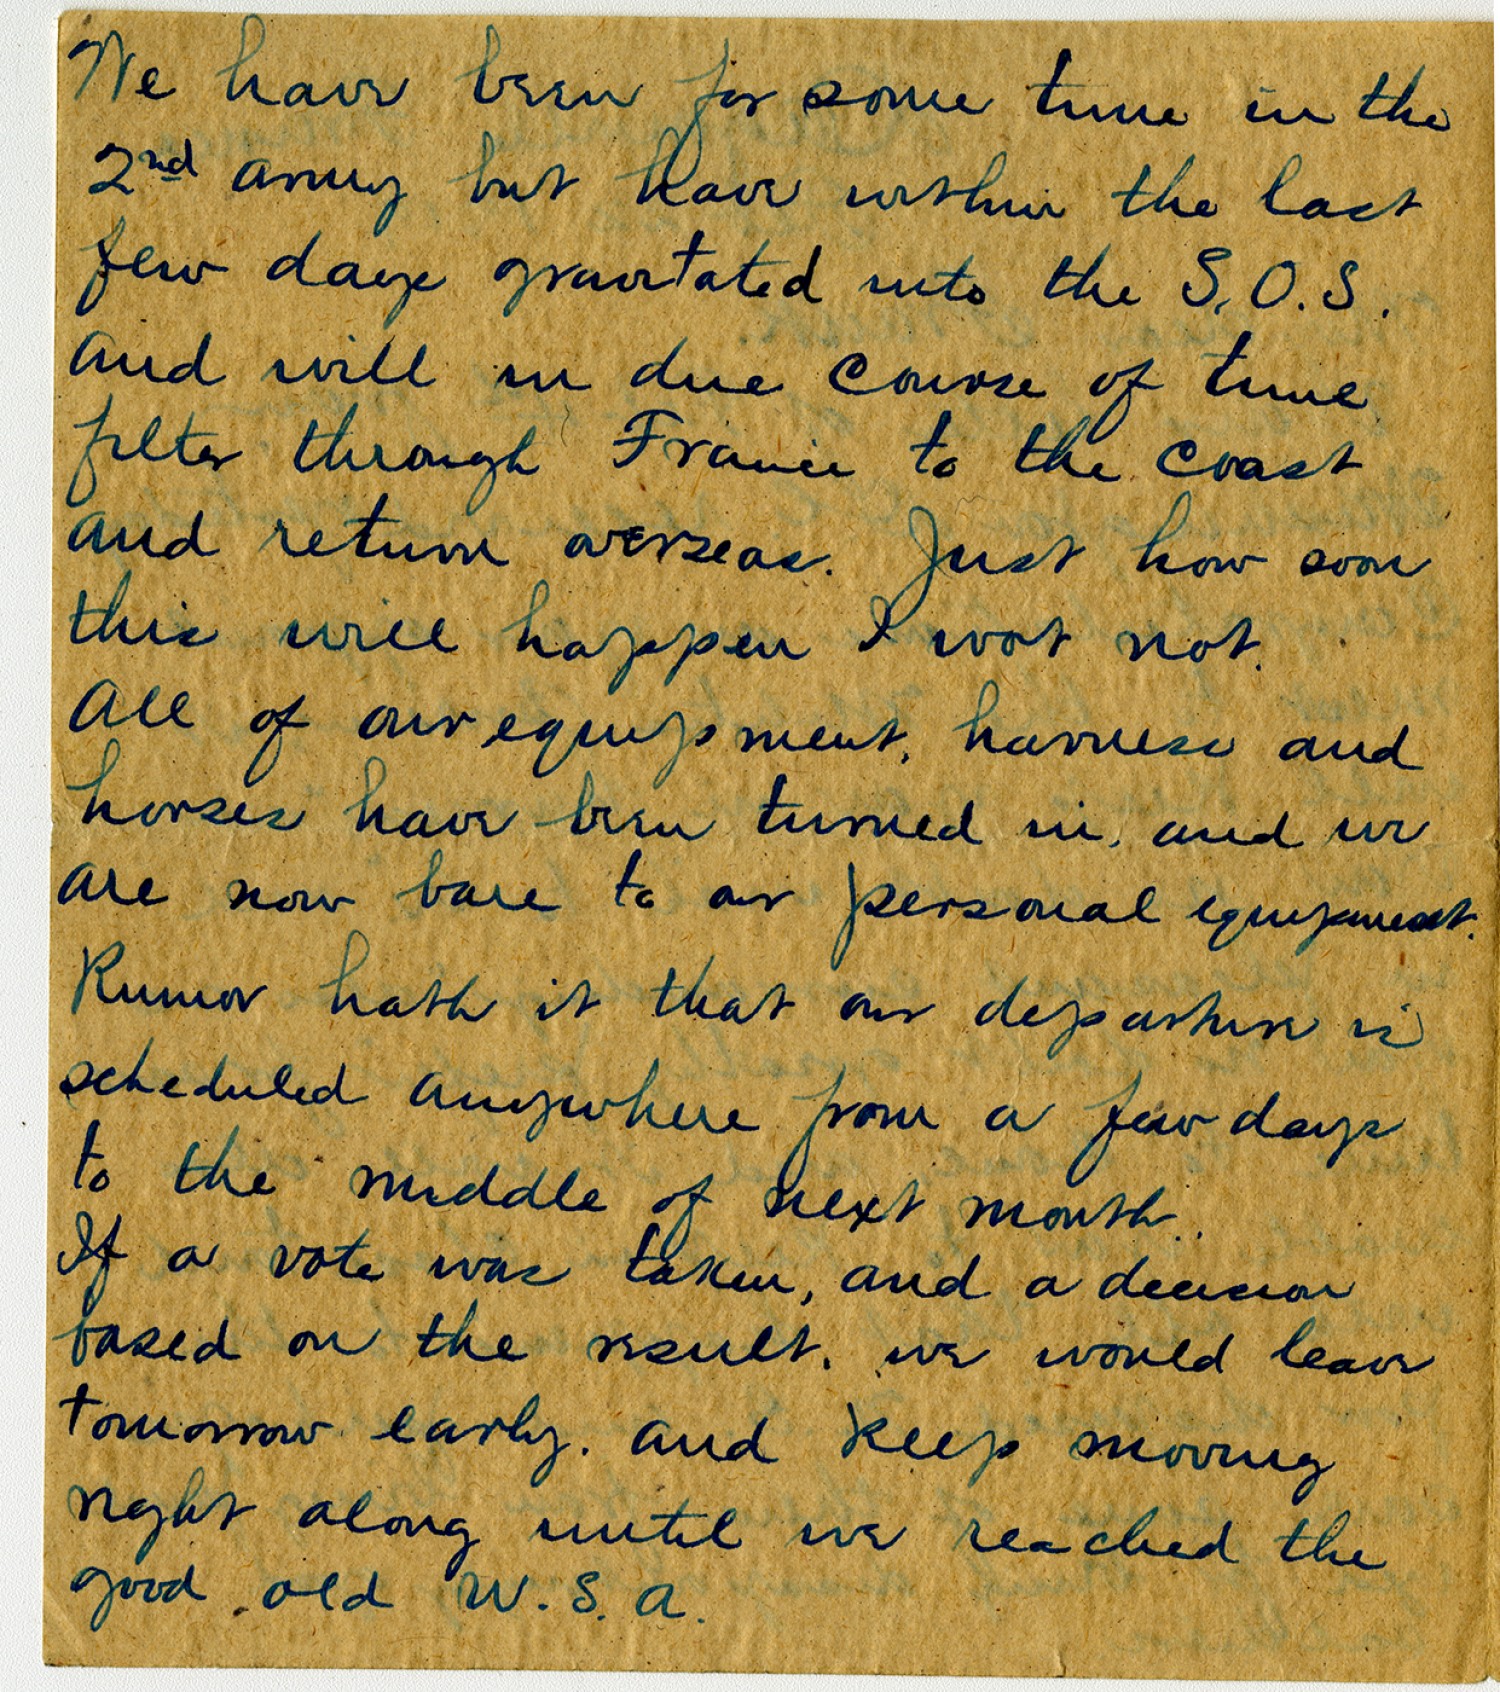 We have been for some time in the
2nd army but have within the last
few days gravitated into the S.O.S.
and will in due course of time
filter through France to the coast
and return overseas. Just how soon
this will happen I wot not.
All of our equipment, harness and
horses have been turned in, and we
are now bare to our personal equipment.
Rumor hath it that our departure is
scheduled anywhere from a few days
to the middle of next month.
If a vote was taken, and a decision
based on the result, we would leave
tomorrow early. and keep moving
right along until we reached the
good old U.S.A.